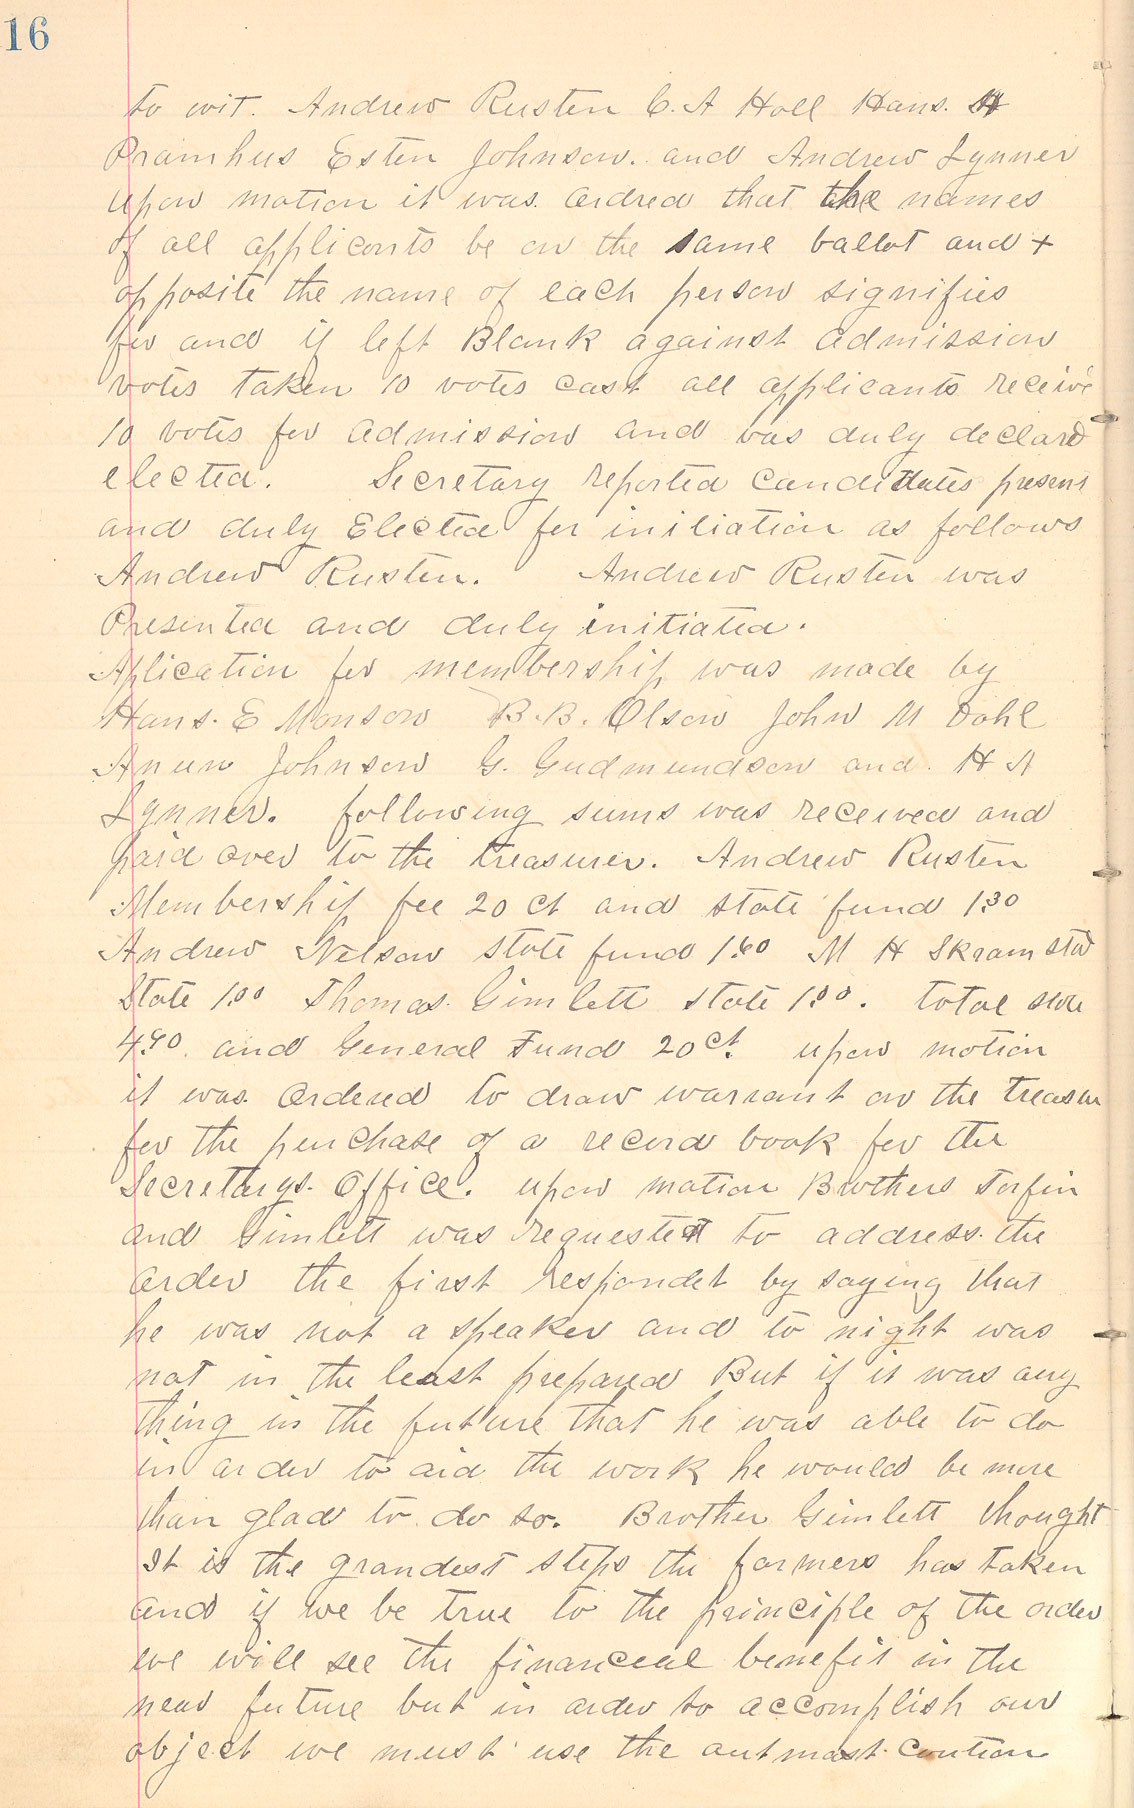 16
to wit. Andrew Rusten C. A Holl Hans. H
Pramhus Esten Johnson. and Andrew Lynner
upon motion it was ordred that the names
of all applicants be on the same ballot and +
opposite the name of each person signifies
for and if left Blank against admission
votes taken 10 votes cast all applicants receive
10 votes for admission and was duly declard
elected. Secretary reported candidates present
and duly Elected for initiation as follows
Andrew Rusten. Andrew Rusten was
Presented and duly initiated.
Aplication for membership was made by
Hans. E Monson B. B. Olson John M Dahl
Anun Johnson G. Gudmundson and. H A
Lynner. following sums was received and
paid over to the treasurer. Andrew Rusten
Membership fee 20 ct and state fund 1.30
Andrew Nelson state fund 1.60 M H Skramstad
State 1.00 Thomas. Gimlett state 1.00. total state
4.90. and General Fund 20 ct. upon motion
it was. Ordered to draw warrant on the treasur
for the purchase of a record book for the
Secretarys. Office. upon motion Brothers Torfin
and Gimlett was requested to address. the
order the first respondet by saying that
he was not a speaker and to night was
not in the least prepared But if it was any
thing in the future that he was able to do
in order to aid the work he would be more
than glad to do so. Brother Gimlett thought
It is the grandest steps the farmers has taken
and if we be true to the principle of the order
we will see the financeal benefit in the
near future but in order to accomplish our
object we must use the outmost caution